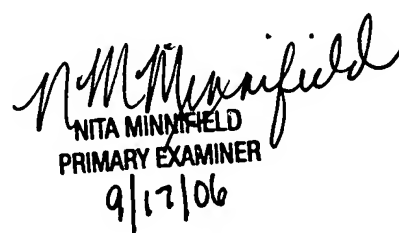 N M Minnifield
NITA MINNIFIELD
PRIMARY EXAMINER
9/17/06